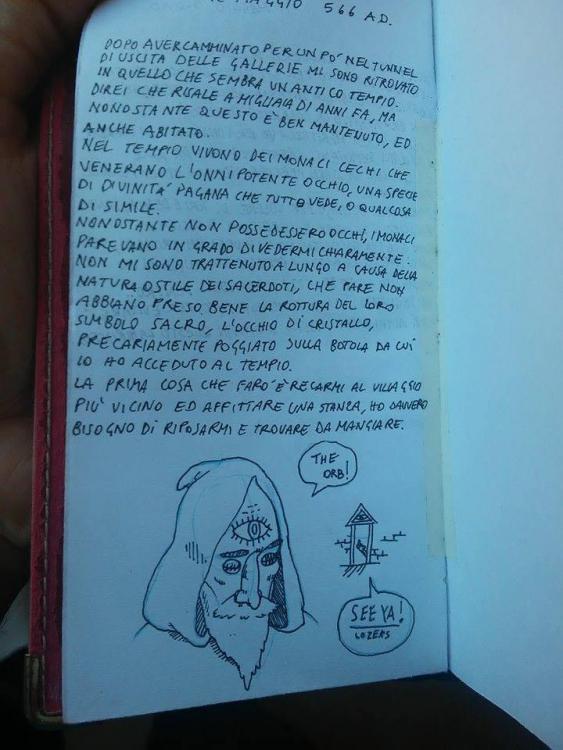 MAGGIO 566 A.D.
DOPO AVER CAMMINATO PER UN PO' NEL TUNNEL
DI USCITA DELLE GALLERIE MI SONO RITROVATO
IN QUELLO CHE SEMBRA UN ANTICO TEMPIO.
DIREI CHE RISALE A MIGLIAIA DI ANNI FA, MA
NONOSTANTE QUESTO È BEN MANTENUTO, ED
ANCHE ABITATO.
NEL TEMPIO VIVONO DEI MONACI CECHI CHE
VENERANO L'ONNIPOTENTE OCCHIO, UNA SPECIE
DI DIVINITA' PAGANA CHE TUTTO VEDE, O QUALCOSA
DI SIMILE.
NONOSTANTE NON POSSEDESSERO OCCHI, I MONACI
PAREVANO IN GRADO DI VEDERMI CHIARAMENTE.
NON MI SONO TRATTENUTO A LUNGO A CAUSA DELLA
NATURA OSTILE DEI SACERDOTI, CHE PARE NON
ABBIANO PRESO BENE LA ROTTURA DEL LORO
SIMBOLO SACRO, L'OCCHIO DI CRISTALLO,
PRECARIAMENTE POGGIATO SULLA BOTOLA DA CUI
IO HO ACCEDUTO AL TEMPIO.
LA PRIMA COSA CHE FARO' È RECARMI AL VILLAGGIO
PIU' VICINO ED AFFITTARE UNA STANZA, HO DAVVERO
BISOGNO DI RIPOSARMI E TROVARE DA MANGIARE.
THE
ORB!
SEE YA!
LOZERS